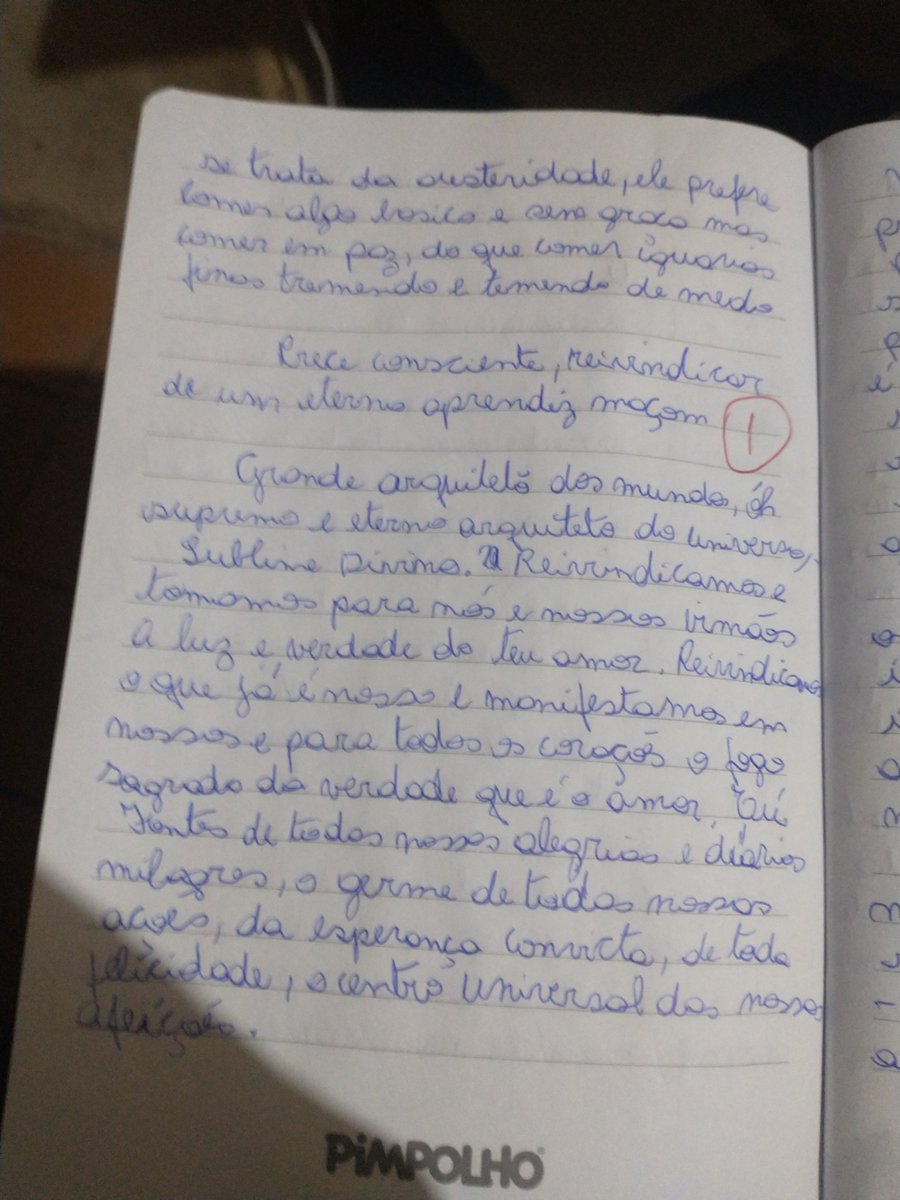 se trata da austeridade, ele prefere
comer algo basico e sem graça mas
comer em paz, do que comer iguarias
finas tremendo e temendo de medo
Prece consciente, reivindicar
de um eterno aprendiz maçom 1
Grande arquitetô dos mundo, óh
supremo e eterno arquiteto do universo,
Sublime Divino. Reivindicamos e
tomamos para nós e nossos irmãos
a luz e verdade do teu amor. Reivindicamo
o que já é nosso e manifestamos em
nossos e para todos os coraçõs o fogo
sagrado da verdade que é o amor,
Fontes de todas nossas alegrias e diários
milagres, o germe de todas nossas
acoes, da esperança convicta, de toda
felicidade, o centro universal das nossas
afeições.
PiMPOLHO